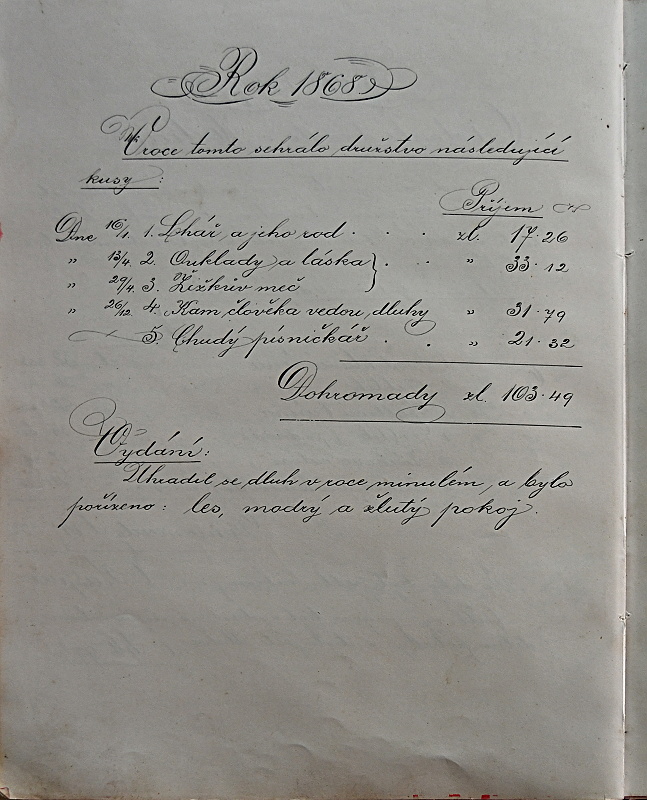 Rok 1868
V roce tomto sehrálo družstvo následující
kusy:
Příjem
Dne 16/1. 1. Lhář a jeho rod . . . zl. 17·26
„ 13/4. 2. Ouklady a láska } . . „ 33·12
„ 29/4. 3. Žižkův meč
„ 26/12 4. Kam člověka vedou dluhy „ 31·79
5. Chudý písničkář . . „ 21·32
Dohromady zl. 103·49
Vydání:
Uhradil se dluh v roce minulém, a bylo
pořízeno: les, modrý a žlutý pokoj.